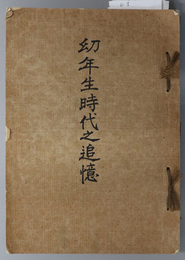 幼年生時代之追憶